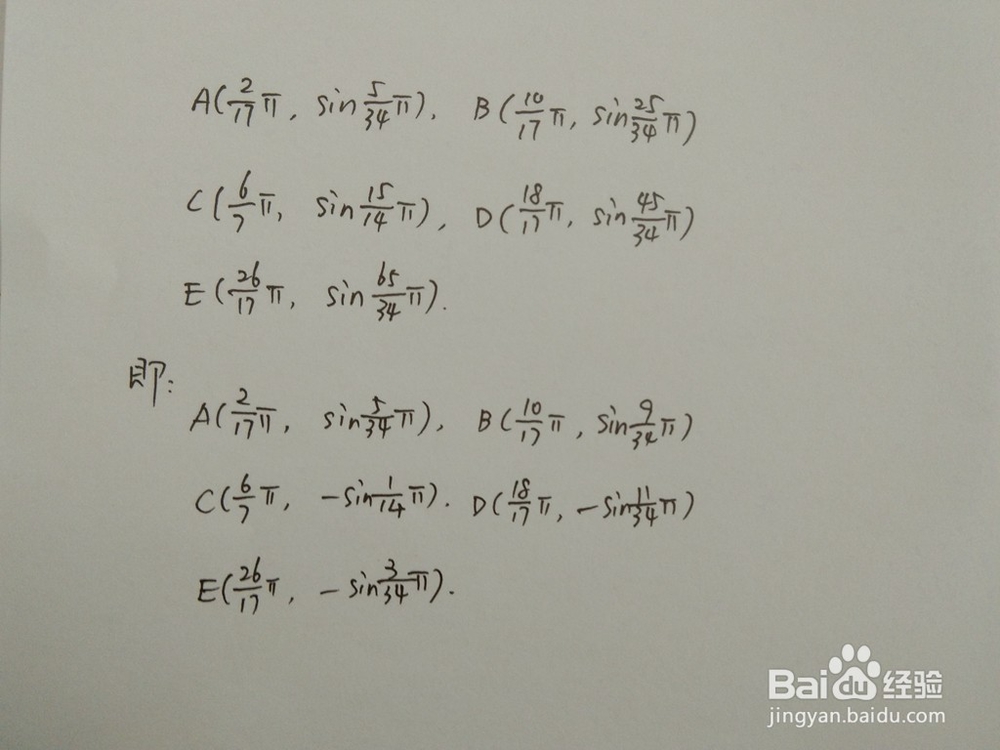 A(2/17 π, sin 5/34 π), B(10/17 π, sin 25/34 π)
C(6/7 π, sin 15/14 π), D(18/17 π, sin 45/34 π)
E(26/17 π, sin 65/34 π).
即:
A(2/17 π, sin 5/34 π), B(10/17 π, sin 9/34 π)
C(6/7 π, -sin 1/14 π). D(18/17 π, -sin 11/34 π)
E(26/17 π, -sin 3/34 π).
Bai du 经验
jingyan.baidu.com